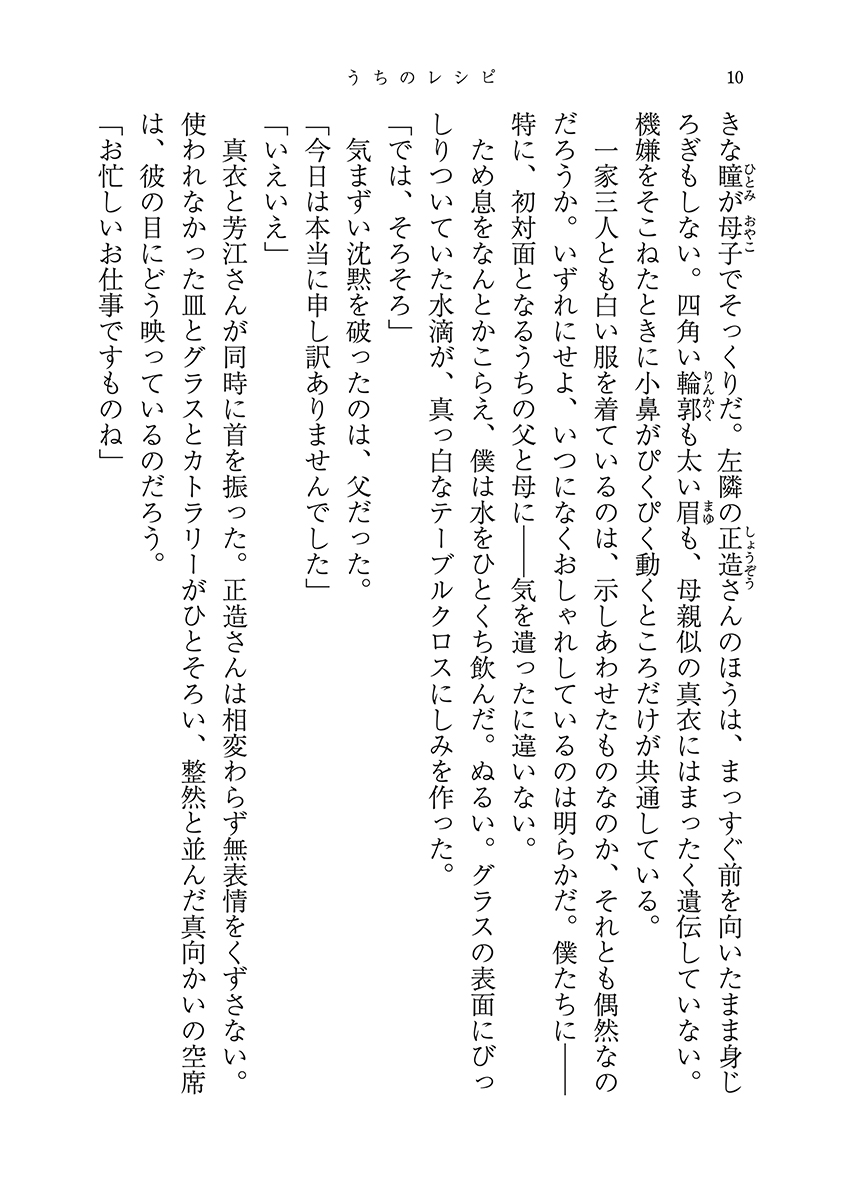 うちのレシピ
10
きな瞳が母子でそっくりだ。左隣の正造さんのほうは、まっすぐ前を向いたまま身じ
ろぎもしない。四角い輪郭も太い眉も、母親似の真衣にはまったく遺伝していない。
機嫌をそこねたときに小鼻がぴくぴく動くところだけが共通している。
一家三人とも白い服を着ているのは、示しあわせたものなのか、それとも偶然なの
だろうか。いずれにせよ、いつになくおしゃれしているのは明らかだ。僕たちに――
特に、初対面となるうちの父と母に――気を遣ったに違いない。
ため息をなんとかこらえ、僕は水をひとくち飲んだ。ぬるい。グラスの表面にびっ
しりついていた水滴が、真っ白なテーブルクロスにしみを作った。
「では、そろそろ」
気まずい沈黙を破ったのは、父だった。
「今日は本当に申し訳ありませんでした」
「いえいえ」
真衣と芳江さんが同時に首を振った。正造さんは相変わらず無表情をくずさない。
使われなかった皿とグラスとカトラリーがひとそろい、整然と並んだ真向かいの空席
は、彼の目にどう映っているのだろう。
「お忙しいお仕事ですものね」
ひとみ
おやこ
しょうぞう
りんかく
まゆ